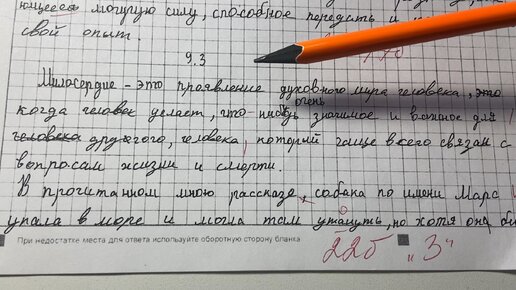 ющееся могучую силу, способное передать и
свой опыт.
9.3
Милосердие - это проявление духовного мира человека, это
когда человек делает, что-нибудь очень значимое и важное для
человека другого, человека, который чаще всего связан с
вопросам жизни и смерти.
В прочитанном мною рассказе, собака по имени Марс
упала в море и могла там утануть, но хотя она бы
При недостатке места для ответа используйте оборотную сторону бланка
22б "3"